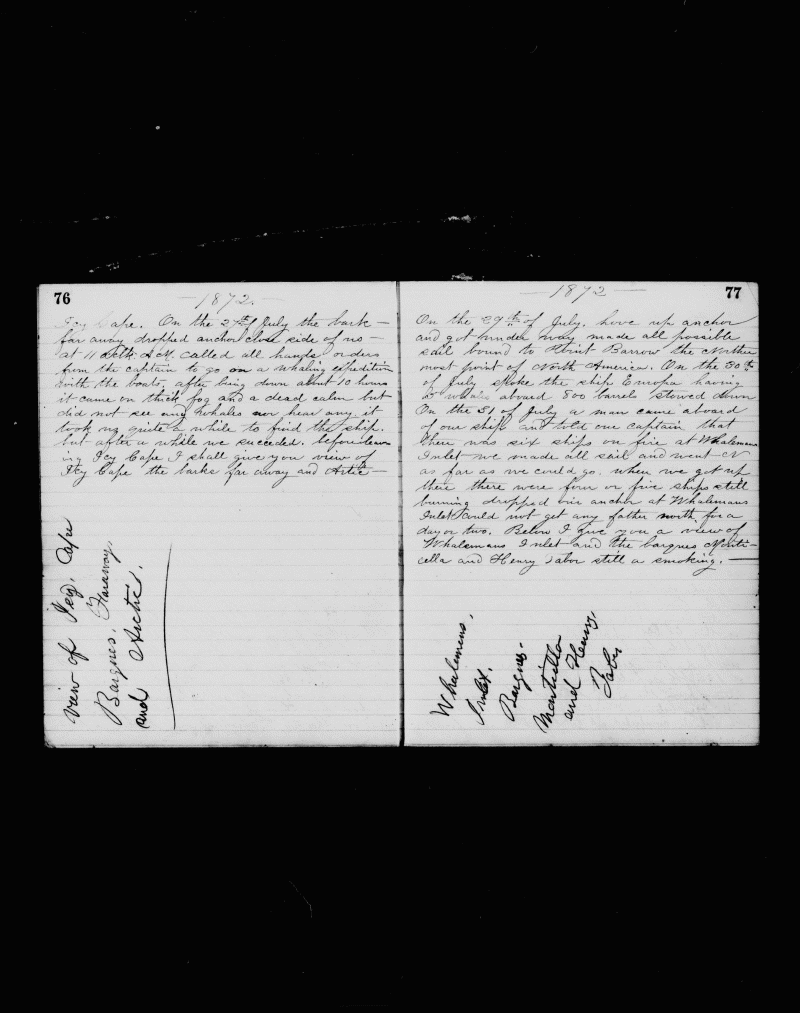 76
—1872.—
Icy Cape. On the 27th of July the bark—
far away dropped anchor close side of us—
at 11 A.M. called all hands orders
from the captain to go on a whaling expedition
with the boats, after being down about 10 hours
it came on thick fog and a dead calm but
did not see any whales nor hear any. it
took us quite a while to find the ship.
but after a while we succeded. before leav
ing Icy Cape I shall give you view of
Icy Cape the barks far away and Artic—
View of Icy. Cape
Barques. Faraway.
and Arctic.
—1872—
77
On the 29th of July, hove up anchor
and got under way made all possible
sail bound to Point Barrow the Northern
most point of North America. On the 30th
of July spoke the ship Europa having
whales aboard 800 barrels stowed down
On the 31 of July a man came aboard
of our ship and told our captain that
there was six ships on fire at Whalemans
Inlet we made all sail and went N
as far as we could go. when we got up
there there were four or five ships still
burning dropped our anchor at Whalemans
Inlet could not get any father north for a
day or two. Below I give you a view of
Whalemans Inlet and the barques Monti-
cella and Henry Tabor still a smoking.—
Whalemens.
Inlet.
Barques.
Montcello
and Henry.
Tabor